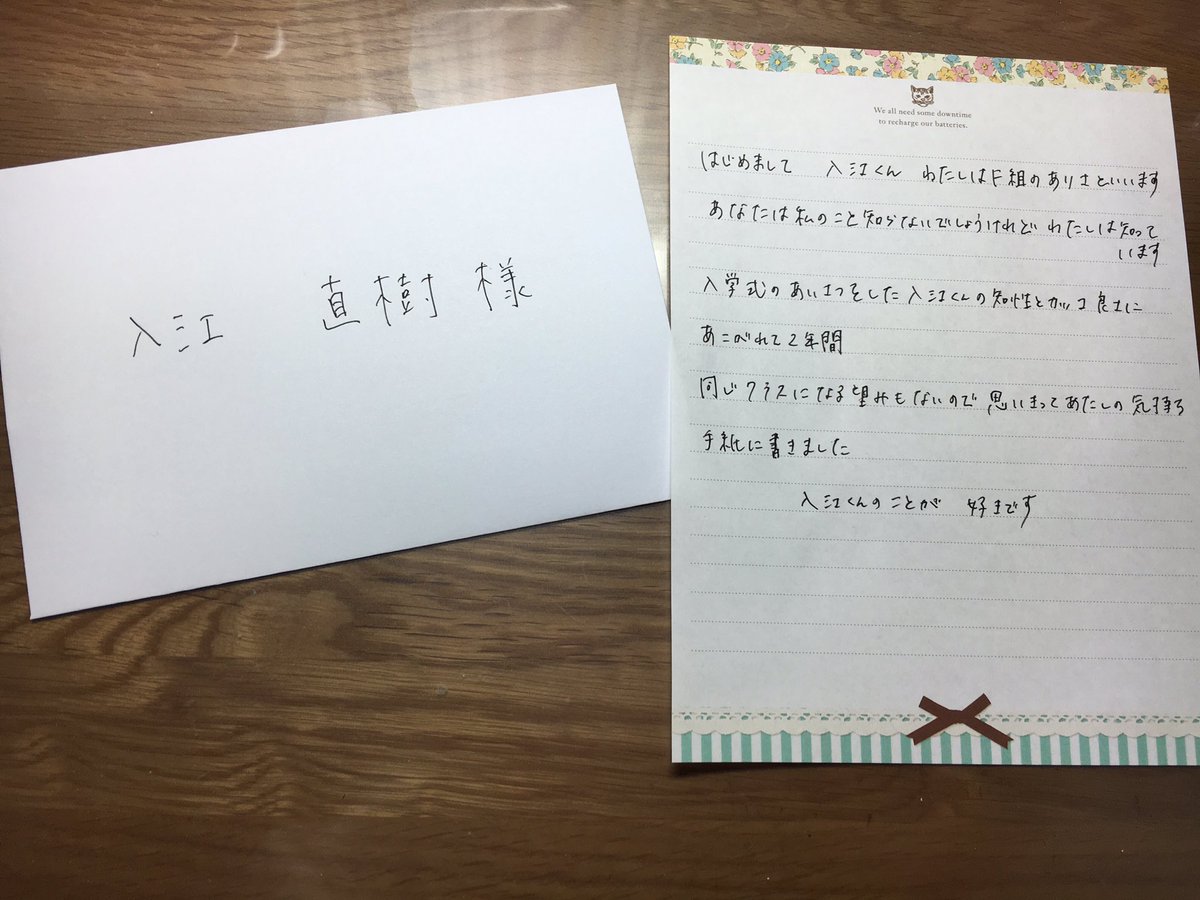 入江 直樹 様
We all need some downtime
to recharge our batteries.
はじめまして 入江くん わたしはF組のありさといいます
あなたは私のこと知らないでしょうけれど わたしは知って
います
入学式のあいさつをした入江くんの知性とカッコ良さに
あこがれて2年間
同じクラスになる望みもないので 思いきってあたしの気持ち
手紙に書きました
入江くんのことが 好きです